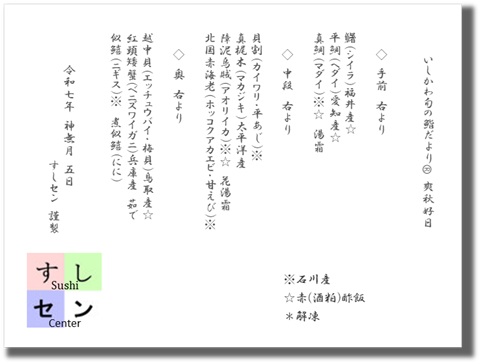 いしかわ旬の鮨だより⑳ 爽秋好日
◇ 手前 右より
鱪(シイラ)福井産☆
平鯛(ヘダイ)愛知産☆
真鯛(マダイ)※☆ 湯霜
◇ 中段 右より
貝割(カイワリ・平あじ)※
真梶木(マカジキ)太平洋産
障泥烏賊(アオリイカ)※☆ 花湯霜
北国赤海老(ホッコクアカエビ・甘えび)※
◇ 奥 右より
越中貝(エッチュウバイ・梅貝)鳥取産☆
紅頭矮蟹(ベニズワイガニ)兵庫産 茹で
似鱚(ニギス)※ 煮似鱚(にに)
令和七年 神無月 五日
すしセン 謹製
※石川産
☆赤(酒粕)酢飯
*解凍
すし
Sushi
セン
Center